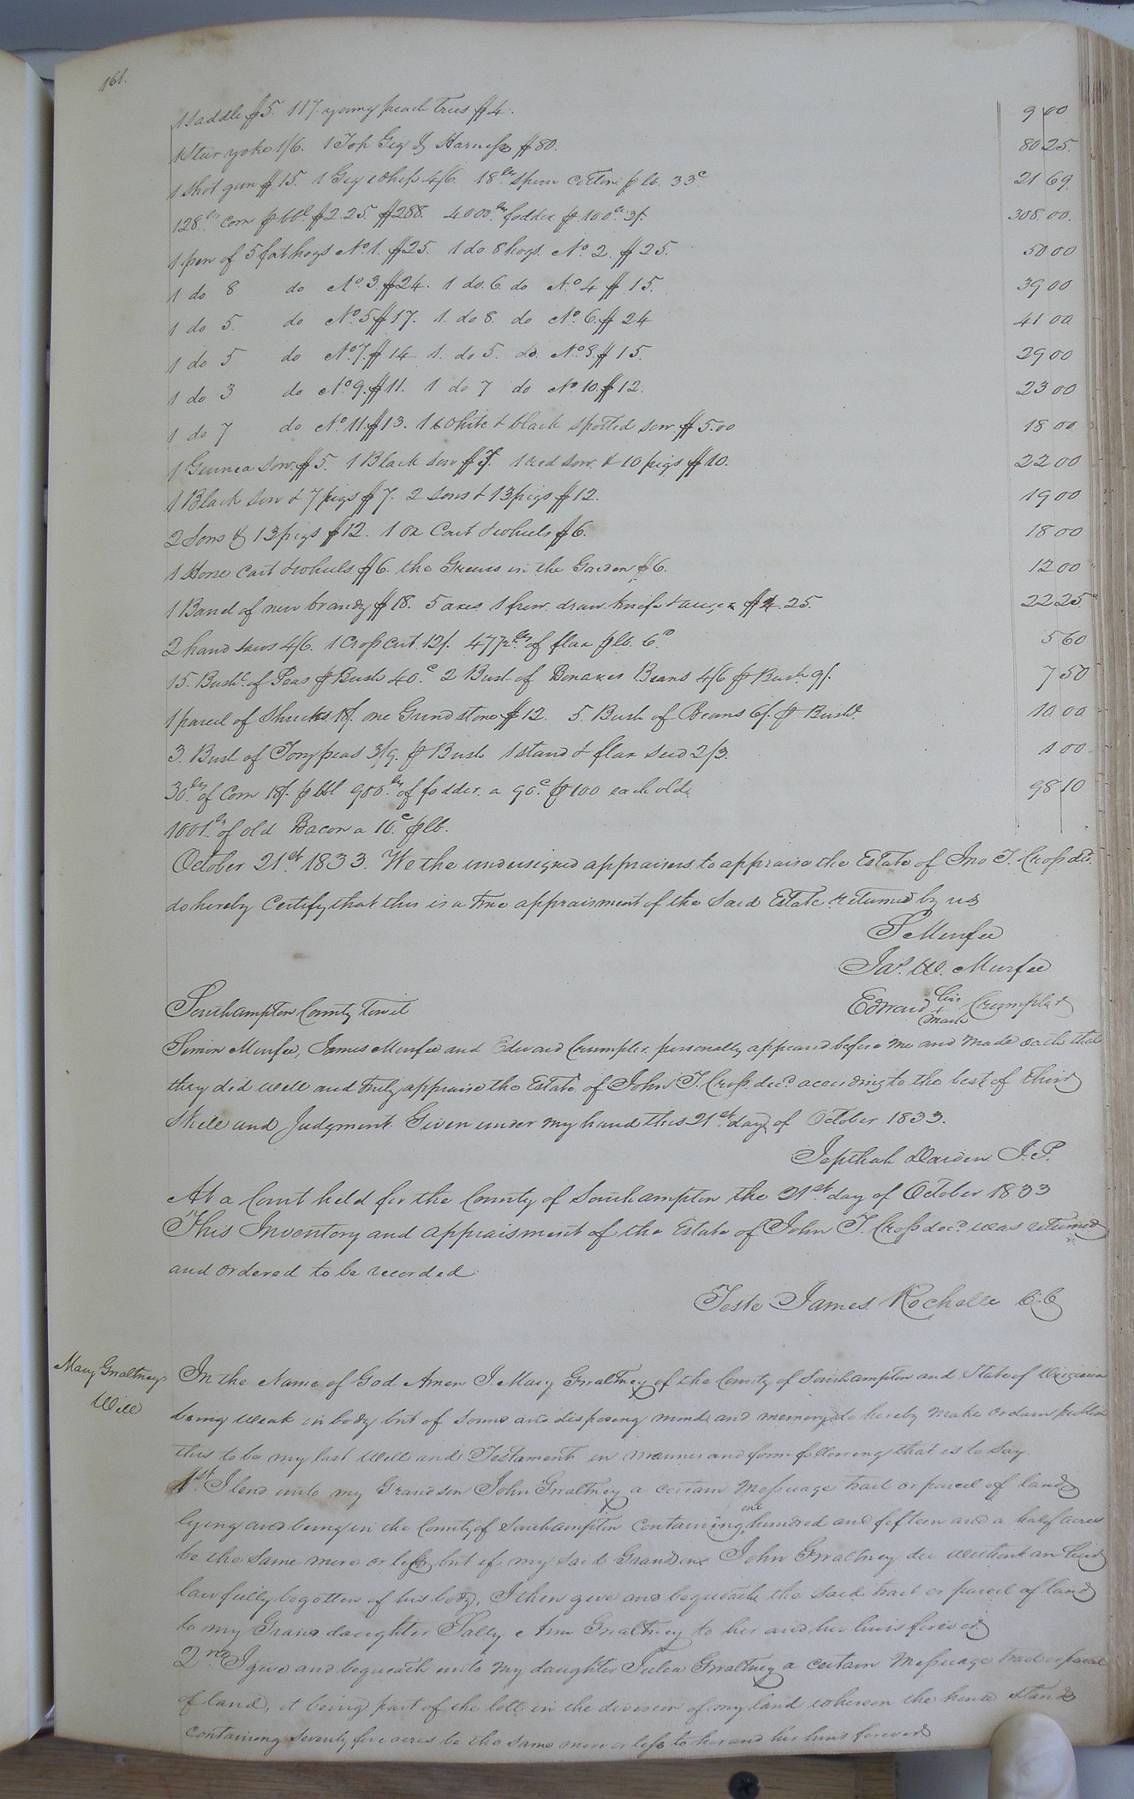 161.
1 Saddle $5. 117 young peach Trees $4. 9 00
1 Steer yoke 1/6. 1 Top Gig & Harness $80. 80 25
1 Shot gun $15. 1 Gig whip 4/6. 18 lbs spun cotton p lb. 33c 21 69
128 lls corn p bbl $2.25. $288. 4000 lbs fodder p 100 lbs 3/. 308.00.
1 pen of 5 fat hogs No. 1. $25. 1 do 8 hogs. No. 2. $25. 50 00
1 do 8 do No. 3. $24. 1 do. 6 do No. 4 $15. 39 00
1 do 5. do No. 5 $17. 1. do 8. do No. 6. $24 41 00
1 do 5 do No. 7. $14 1. do 5. do. No. 8. $15. 29 00
1 do 3 do No. 9. $11. 1 do 7 do No. 10. $12. 23 00
1 do 7 do No. 11. $13. 1 white & black spotted sow. $5.00 18 00
1 Guinea Sow. $5. 1 Black sow $7. 1 red sow. & 10 pigs $10. 22 00
1 Black sow & 7 pigs $7. 2 sows & 13 pigs $12. 19 00
2 Sows & 13 pigs $12. 1 ox Cart & wheels $6. 18 00
1 Horse Cart & wheels $6. the Greens in the Garden $6. 12 00
1 Barrel of new brandy $18. 5 axes 1 frow. draw knife & auger $4.25. 22 25
2 hand saws 4/6. 1 Cross cut. 12/. 47 lbs of flax p lb. 6c 5 60
15. Bushl. of Peas p Bush 40.c 2 Bush of Beans 4/6 p Bush 9/. 7 50
1 parcel of Shucks 18/. one Grind stone $12. 5. Bush of Beans 6/. p Bushl. 10 00
3. Bush of Tory peas 3/9. p Bush 1 stand & flax seed 2/3. 1 00
30 lls of Corn 18/. p bbl 900 lbs of fodder. a 90.c p 100 each old 98 10
1001 lbs of old Bacon a 10.c p lb.
October 21st 1833. We the undersigned appraisers to appraise the Estate of Jno T. Cross dec.
do hereby Certify that this is a true appraisment of the Said Estate returned by us
S Murfee
Jas. W. Murfee
Edward his + mark Crumpler
Southampton County Towit
Simon Murfee, James Murfee and Edward Crumpler personally appeared before me and made oath that
they did well and truly appraise the Estate of John T. Cross decd according to the best of their
Skill and Judgment Given under my hand this 21st day of October 1833.
Jepthah Darden. J. P.
At a Court held for the County of Southampton the 21st day of October 1833
This Inventory and appraisment of the Estate of John T. Cross decd was returned
and ordered to be recorded
Teste James Rochelle C. C
Mary Gwaltneys
Will
In the Name of God Amen I Mary Gwaltney of the County of Southampton and State of Virginia
being weak in body but of Sound and disposing mind and memory do hereby make ordain publish
this to be my last Will and Testament in manner and form following that is to Say.
1st I lend unto my Grandson John Gwaltney a certain Messuage tract or parcel of land
lying and being in the County of Southampton containing one hundred and fifteen and a half acres
be the Same more or less, but if my Said Grandson John Gwaltney die without an heir
lawfully begotten of his body, I then give and bequeath the Said tract or parcel of land
to my Grand daughter Sally Ann Gwaltney to her and her heirs forever
2nd I give and bequeath unto my daughter Julia Gwaltney a certain Messuage tract or parcel
of land, it being part of the lott in the division of my land whereon the house Stands
containing Seventy five acres be the Same more or less to her and her heirs forever